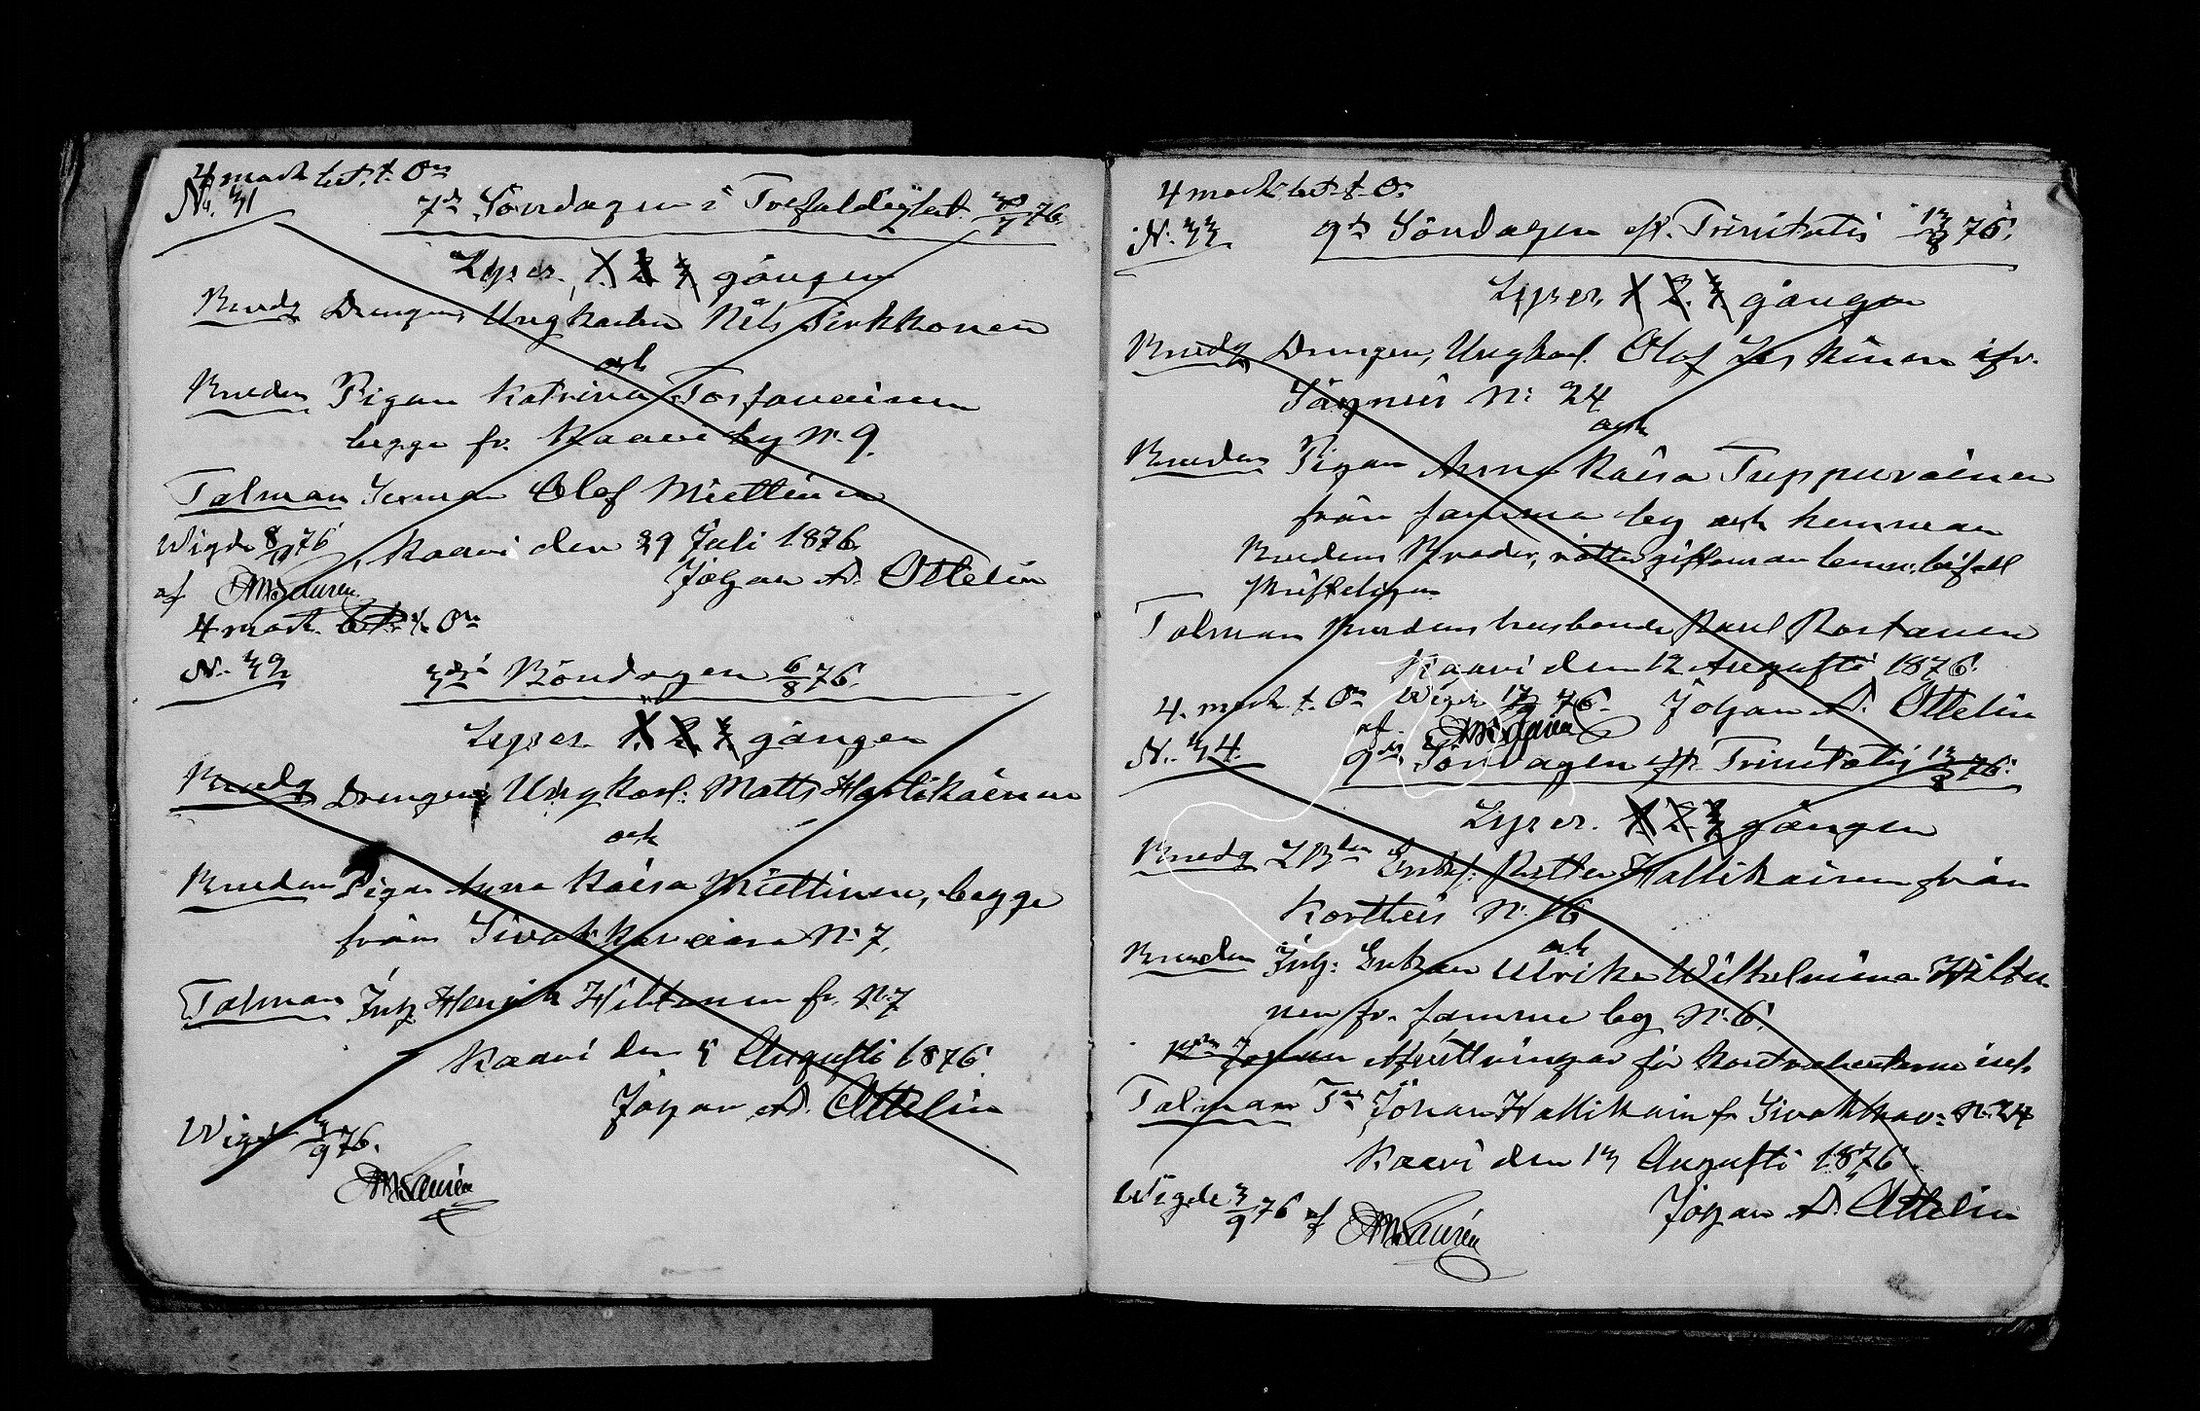 4 mark bet. t. Orn
No. 31 7de Söndagen i Trefaldighet. 30/7 76.
Lyses. 1. 2. 3 gången
Brudg Drengen Ungkarlen Nils Pirkkonen
och
Bruden Pigan Katrina Tossavainen
begge fr. Kaavi by N. 9.
Talman Inhman Olof Miettinen
Wigde 8/9 76 Kaavi den 29 Juli 1876
af AMLaurén Johan A. Ottelin
4 mark bet. t. Orn
N. 32 3die Böndagen 6/8 76.
Lyses. 1. 2. 3 gången
Brudg Drengen Ungkarl: Matts Hartikainen
och
Bruden Pigan Anna Kaisa Miettinen, begge
från Sivakkavaara N: 7.
Talman Inh Henrik Hiltunen fr. N: 7
Kaavi den 5 Augusti 1876.
Johan A. Ottelin
Wigd 3/9 76.
AMLaurén
4 mark bet. t. Or
N. 33 9de Söndagen eft. Trinitatis 13/8 76.
Lyses. 1. 2. 3 gången
Brudg Drengen, Ungkarl. Olof Leskinen ifr.
Säyneis N: 24
och
Bruden Pigan Anna Kaisa Tuppurainen
från samma by och hemman
Brudens Broder, rätter giftoman lemn. bifall
skrifteligen
Talman Brudens husbonde Paul Rostanen
Kaavi den 12 Augusti 1876.
4. mark t. Orn Wigde 76. Johan A. Ottelin
af AMLaurén
N. 34. 9de Söndagen eft. Trinitatis 13/8 76.
Lyses. 1. 2. 3 gången
Brudg LBden Enkl: Petter Hallikainen från
Kortteis N: 16
och
Bruden Inh: Enkan Ulrika Wilhelmina Hiltu-
nen fr. samma by N: 6.
Afvittringar för kontrahenterne
Talman Johan Hallikain fr Sivakkav: N: 24
Kaavi den 13 Augusti 1876.
Wigde 3/9 76 af AMLaurén Johan A. Ottelin